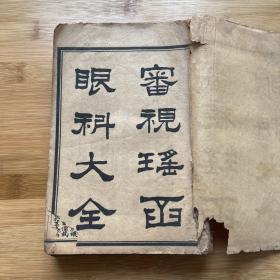 審視瑤函
眼科大全